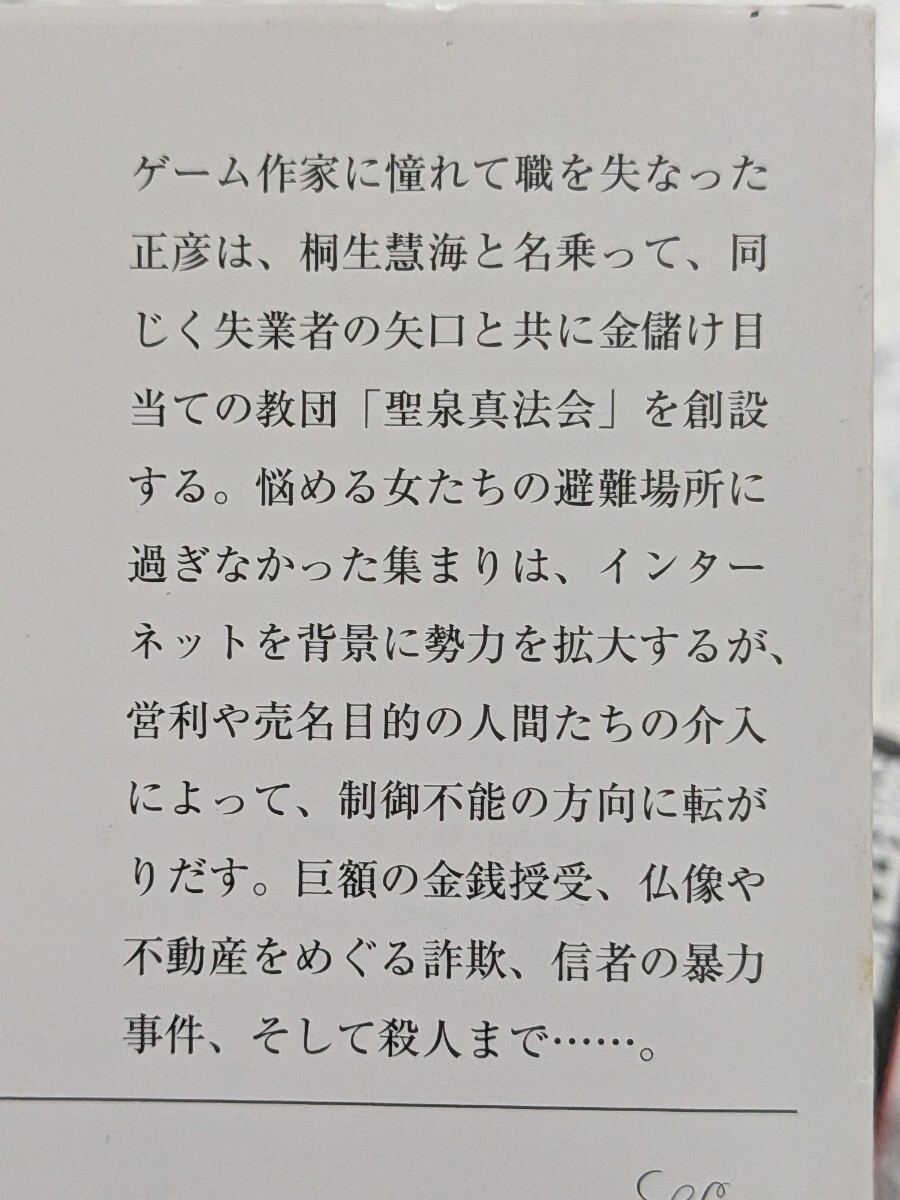 ゲーム作家に憧れて職を失なった
正彦は、桐生慧海と名乗って、同
じく失業者の矢口と共に金儲け目
当ての教団「聖泉真法会」を創設
する。悩める女たちの避難場所に
過ぎなかった集まりは、インター
ネットを背景に勢力を拡大するが、
営利や売名目的の人間たちの介入
によって、制御不能の方向に転が
りだす。巨額の金銭授受、仏像や
不動産をめぐる詐欺、信者の暴力
事件、そして殺人まで……。